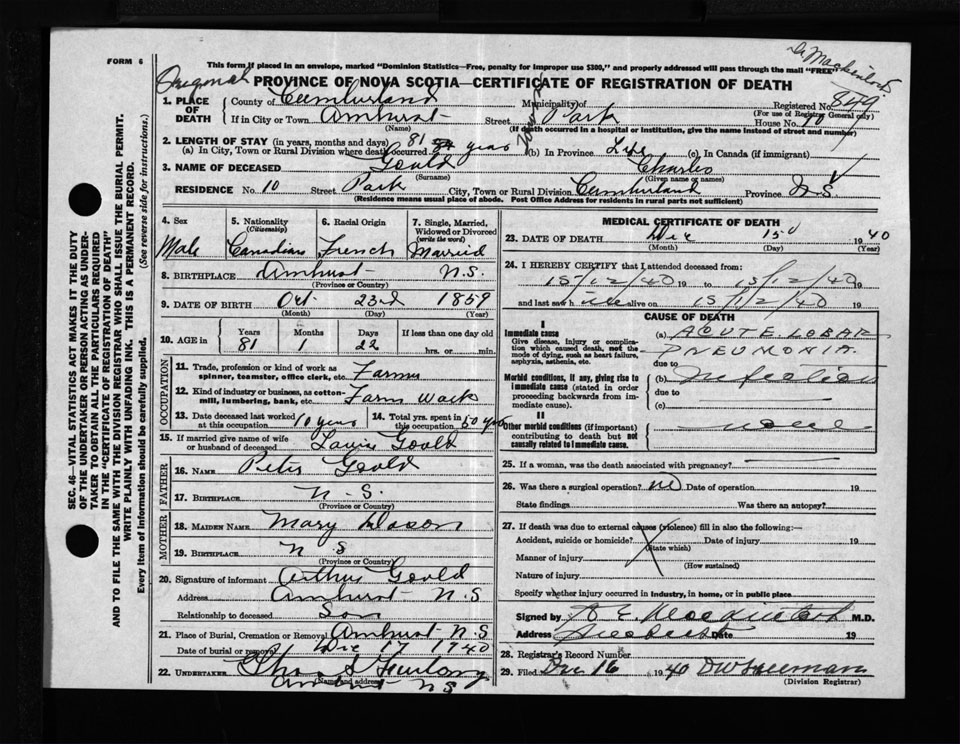 FORM 6
This form if placed in an envelope, marked "Dominion Statistics—Free, penalty for improper use $300," and properly addressed will pass through the mail "FREE"
Original
PROVINCE OF NOVA SCOTIA—CERTIFICATE OF REGISTRATION OF DEATH
1. PLACE OF DEATH County of Cumberland Municipality of Registered No. 849
(For use of Registrar General only)
If in City or Town Amherst Street Park House No. 10
(Name) (If death occurred in a hospital or institution, give the name instead of street and number)
2. LENGTH OF STAY (in years, months and days)
(a) In City, Town or Rural Division where death occurred 81 years (b) In Province Life (c) In Canada (if immigrant)
3. NAME OF DECEASED Goold Charles
(Surname) (Given name or names)
RESIDENCE No. 10 Street Park City, Town or Rural Division Cumberland Province N.S.
(Residence means usual place of abode. Post Office Address for residents in rural parts not sufficient)
4. Sex 5. Nationality (Citizenship) 6. Racial Origin 7. Single, Married, Widowed or Divorced (write the word)
Male Canadian French Married
8. BIRTHPLACE Amherst N.S.
(Province or Country)
9. DATE OF BIRTH Oct 23rd 1859
(Month) (Day) (Year)
10. AGE in Years Months Days If less than one day old
81 1 22 hrs. or min.
OCCUPATION
11. Trade, profession or kind of work as spinner, teamster, office clerk, etc. Farmer
12. Kind of industry or business, as cotton-mill, lumbering, bank, etc. Farm Work
13. Date deceased last worked at this occupation 10 years 14. Total yrs. spent in this occupation 50 yrs
15. If married give name of wife or husband of deceased Goold
FATHER
16. NAME Peter Goold
17. BIRTHPLACE N.S.
(Province or Country)
MOTHER
18. MAIDEN NAME Mary
19. BIRTHPLACE N S
(Province or Country)
20. Signature of informant Arthur Goold
Address Amherst N.S
Relationship to deceased Son
21. Place of Burial, Cremation or Removal Amherst N.S
Date of burial or removal Dec 17 1940
22. UNDERTAKER Furlong
(Name and address)
Amherst N S
MEDICAL CERTIFICATE OF DEATH
23. DATE OF DEATH Dec 15 1940
(Month) (Day) (Year)
24. I HEREBY CERTIFY that I attended deceased from
15/12/40 19 to 15/12/40 19
and last saw h alive on 15/12/40 19
CAUSE OF DEATH
I
Immediate cause (a) ACUTE LOBAR
Give disease, injury or complication which caused death, not the mode of dying, such as heart failure, asphyxia, asthenia, etc. PNEUMONIA
due to
Morbid conditions, if any, giving rise to immediate cause (stated in order proceeding backwards from immediate cause). (b) Infection
due to
(c)
II
Other morbid conditions (if important) contributing to death but not causally related to immediate cause. none
25. If a woman, was the death associated with pregnancy?
26. Was there a surgical operation? no Date of operation 19
State findings Was there an autopsy?
27. If death was due to external causes (violence) fill in also the following:—
Accident, suicide or homicide? Date of injury 19
(State which)
Manner of injury
(How sustained)
Nature of injury
Specify whether injury occurred in Industry, in home, or in public place
Signed by M.D.
Address Date 19
28. Registrar's Record Number
29. Filed Dec 16 1940 D W Freeman
(Division Registrar)
SEC. 46—VITAL STATISTICS ACT MAKES IT THE DUTY
OF THE UNDERTAKER OR PERSON ACTING AS UNDER-
TAKER TO OBTAIN ALL THE PARTICULARS REQUIRED
IN THE "CERTIFICATE OF REGISTRATION OF DEATH"
AND TO FILE THE SAME WITH THE DIVISION REGISTRAR WHO SHALL ISSUE THE BURIAL PERMIT.
WRITE PLAINLY WITH UNFADING INK. THIS IS A PERMANENT RECORD.
Every item of Information should be carefully supplied. (See reverse side for instructions.)